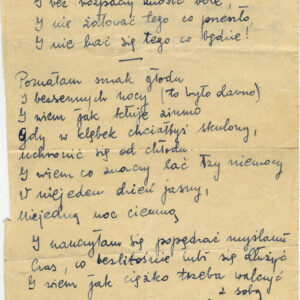 I bez rozpaczy znosić bóle,
I nie żałować tego co przeszło,
I nie bać się tego co będzie!
Poznałam smak głodu
I bezsennych nocy (to było dawno)
I wiem jak kłuje zimno
Gdy w kłębek chciałbyś skulony,
uchronić się od chłodu.
I wiem co znaczy lać łzy niemocy
W niejeden dzień jasny,
Niejedną noc ciemną
I nauczyłam się popędzać myślami
Czas, co bezlitośnie lubi się dłużyć
I wiem jak ciężko trzeba walczyć
z sobą